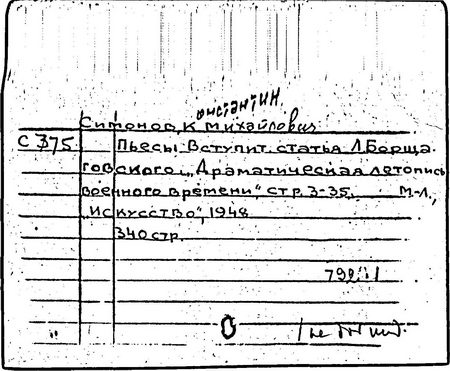 онстантин
Симонов, К. Михайлович
С 375 Пьесы. Вступит. статья Л. Борща-
говского: „Драматическая летопись
военного времени", стр. 3-35. М-Л.,
„Искусство", 1948
340 стр.
0